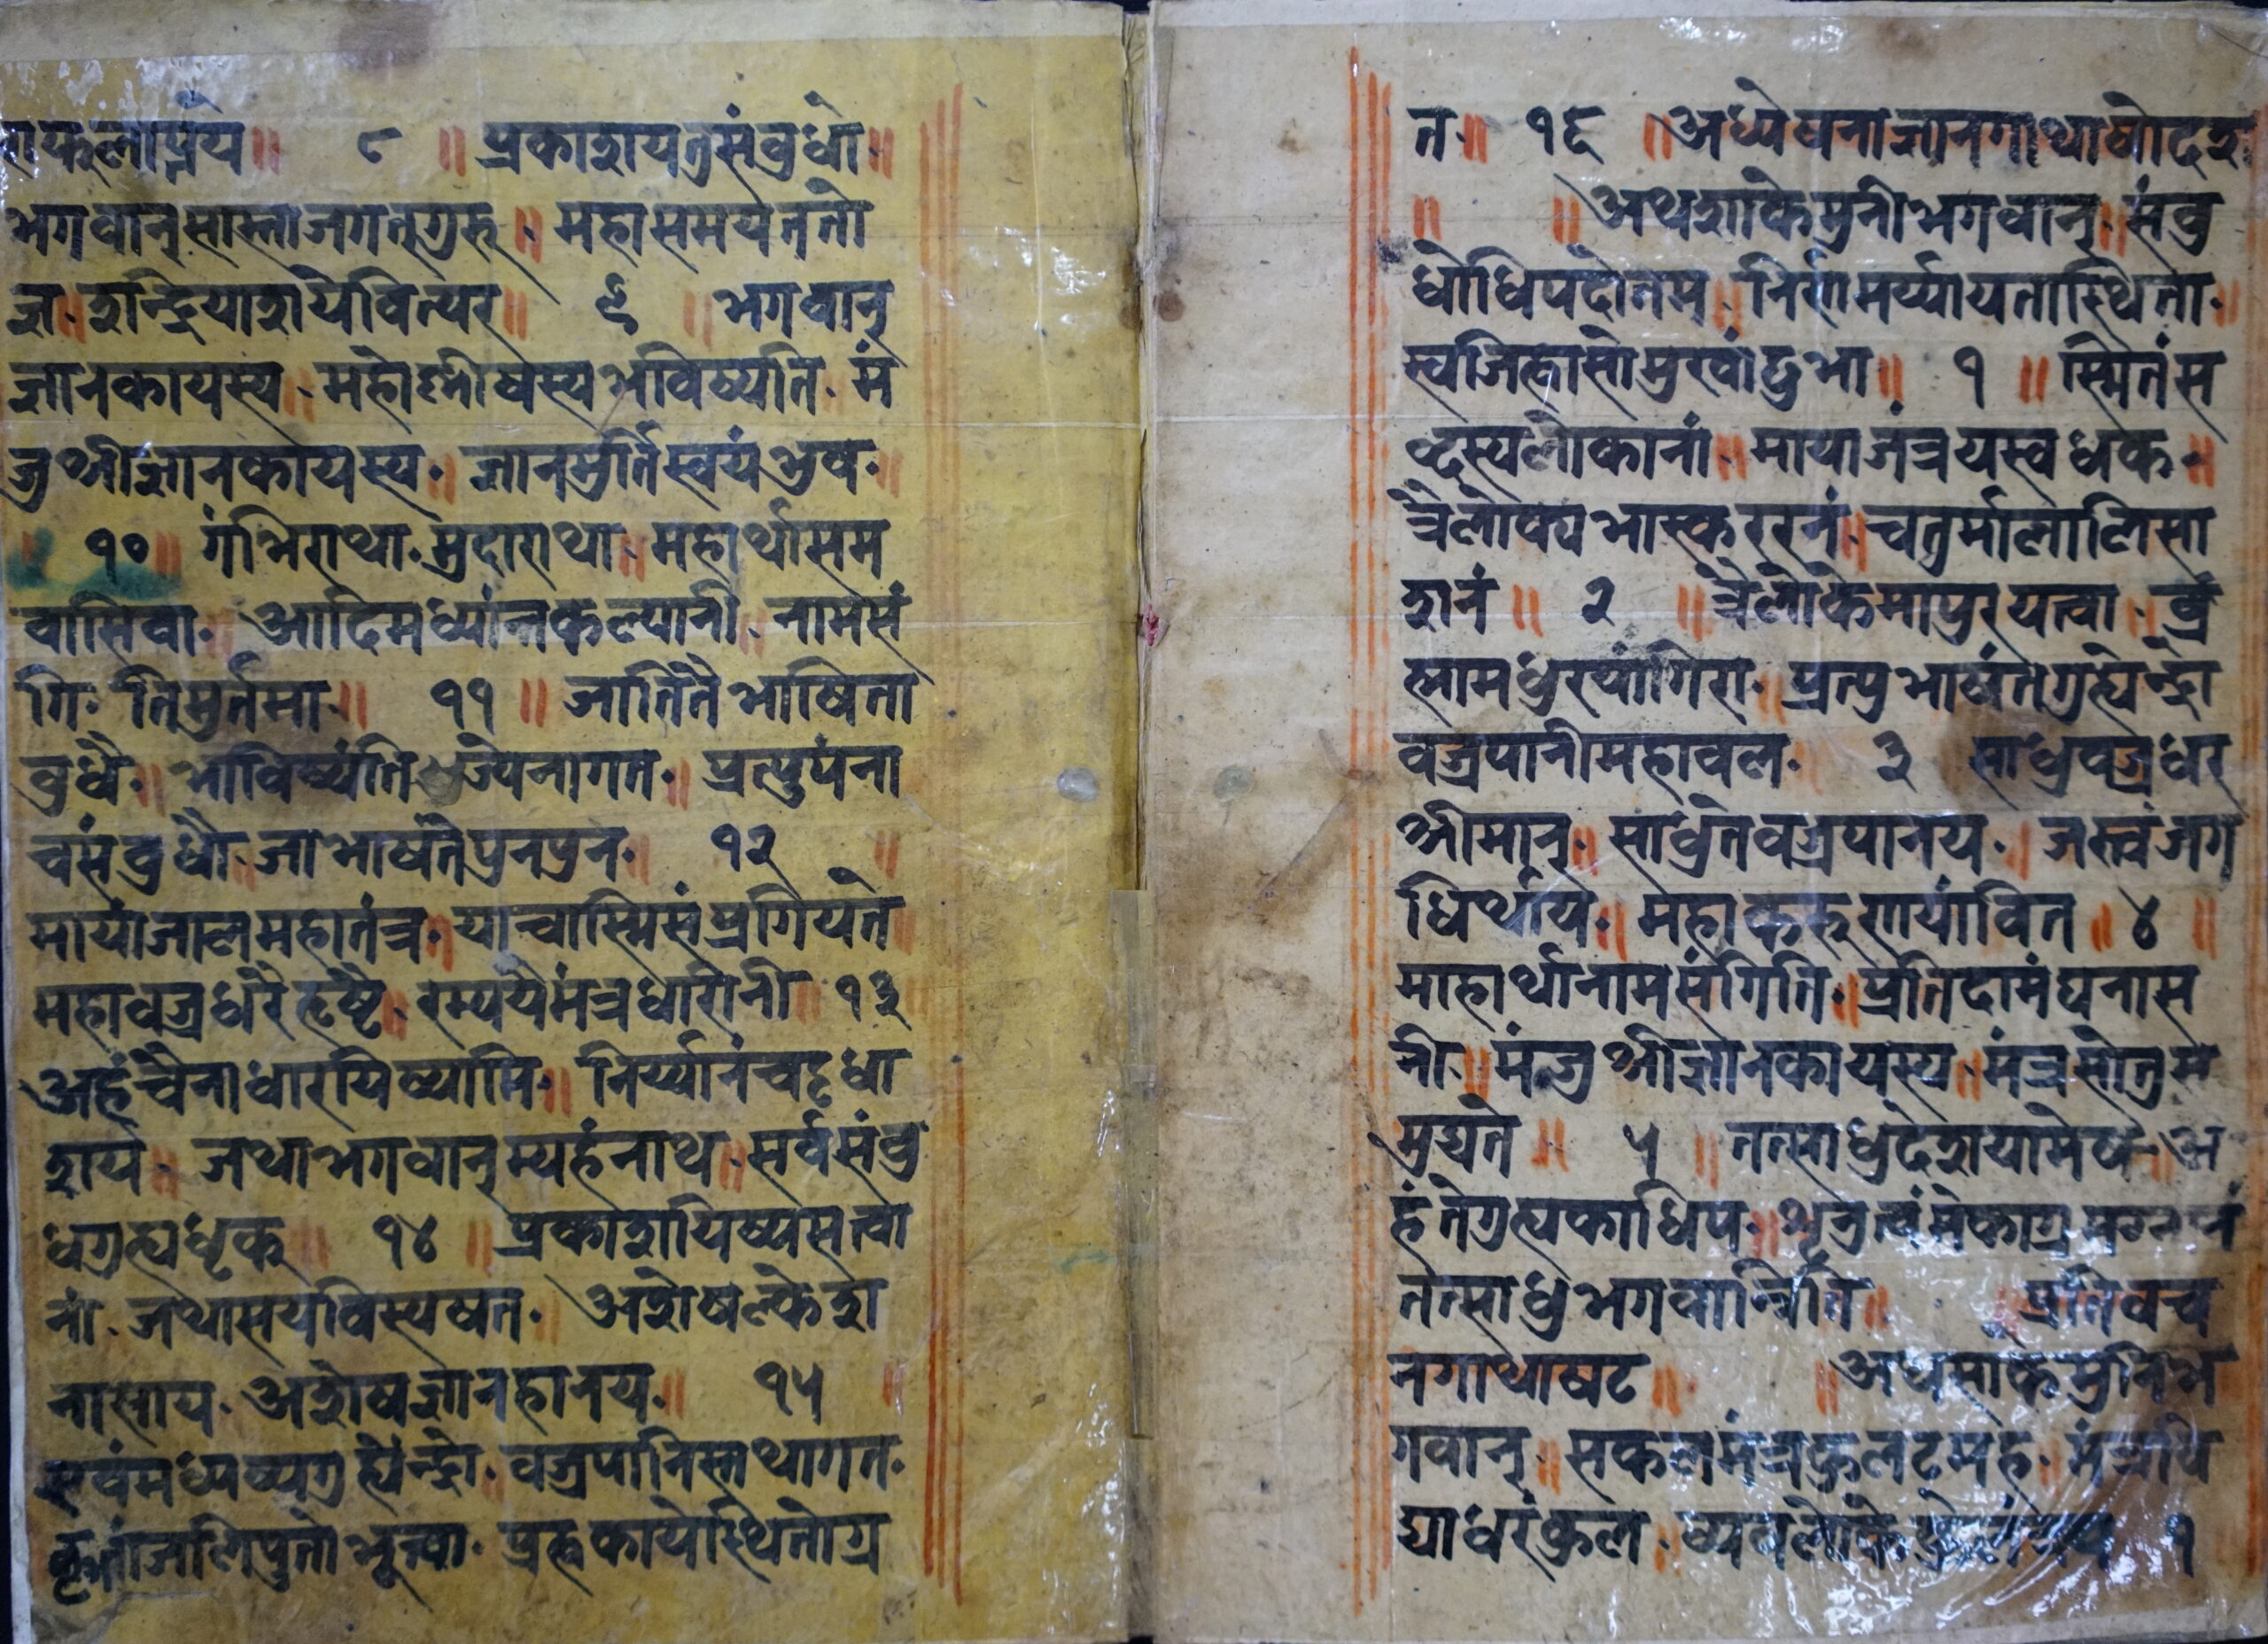 राफुलाप्रंये॥ ८ ॥ प्रकाशयतुसंवुधो॥
भगवान्सास्ताजगत्गुरू॥ महासमयेतत्तो
ज्ञ॥ इन्द्रियाशयेवित्यर॥ ९ ॥ भगवान्
ज्ञानकायस्य॥ महोष्णीषस्यभविष्यति॥ मं
जुश्रीज्ञानकायस्य॥ ज्ञानमुर्तिस्वयंभुव॥
१०॥ गंभिराथा॥मुदाराथा॥ महार्थासम
वासिवा॥ आदिमध्यांन्तकल्यानी॥ नामसं
गि॥ तिमुर्तमा॥ ११ ॥ जातितैभाषिता
वुधै॥ भाविष्यंति ज्येनागत॥ प्रत्युपंना
चसंवुधौ॥जाभाषंतैपुनपुन॥ १२ ॥
मायांजालमहातंत्र॥ याच्वास्मिसंप्रगियंते॥
महावज्रधरैहृष्टै॥ रम्ययैमंत्रधारीनी॥ १३
अहंचैनाधारयिष्यामि॥ निर्य्यानंचदृधा
शय॥ जथाभगवान्म्यहंनाथ॥सर्वसंवु
धगुह्यधृक॥ १४ ॥ प्रकाशयिष्यसत्वा
नां॥ जथासयविस्यषत॥ अशेषल्केशा
नासाय॥ अशेषज्ञानहानय॥ १५ ॥
एवंमध्यष्यगुह्येन्द्रो॥ वज्रपानिस्तथागत॥
कृतांजालिपुतोभूत्वा॥ प्रह्वकायेस्थितोग्र
त॥ १६ ॥अध्येषनाज्ञानगाथाषोदश
॥ ॥अथशाकेमुनीभगवान्॥संवु
धोधिपदोतम्॥ निर्सामर्य्यायतास्थिता॥
स्वजिह्वासोमुखांदुभा॥ १ ॥ स्मितंस
ष्दस्यलोकानां॥ मायाजंत्रयस्वधक॥
त्रैलोक्यभास्कररनं॥चतुर्मालालिसा
शनं॥ २ ॥त्रैलोकेमापुरयत्वा॥ व्रं
ह्मामधुरयांगिरा॥ प्रत्पुभाषंतगुह्येन्द्रो
वज्रपानीमहावल॥ ३ साधुवज्रधर
श्रीमान्॥ सार्धुतेवज्रपानय॥ जस्त्वंजग
धिर्थाय॥ महाकरूणायांवित॥ ४ ॥
माहार्थानामसंगिति॥प्रतिदामंघनास
नी॥ मंन्जुश्रीज्ञानकायस्य॥मंत्रसोतुस
मुद्यते॥ ५ ॥ तत्साधुदेशयामेष॥अ
हंतेगुह्यकाधिप॥
तत्साधुभगवान्निति॥ ॥प्रतिवच
नगाथाषट॥ ॥अथसाकेमुनिभ
गवान्॥ सकलमंत्रकुलदमह॥ मंत्रवि
द्याधरंकुल॥ १